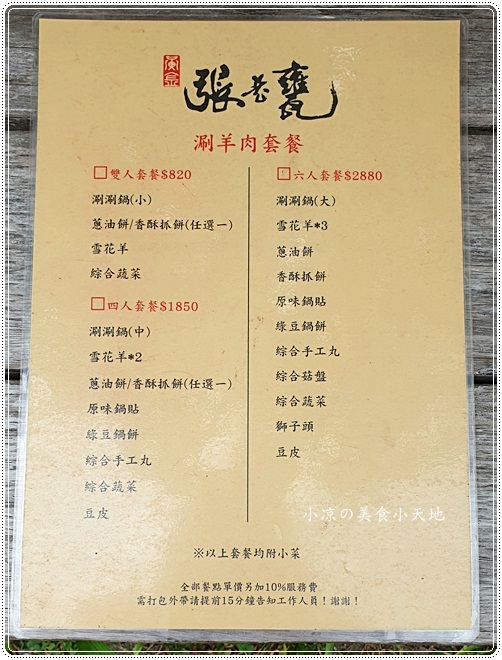 黃金
張老甕
涮羊肉套餐
□雙人套餐$820
涮涮鍋(小)
蔥油餅/香酥抓餅(任選一)
雪花羊
綜合蔬菜
□四人套餐$1850
涮涮鍋(中)
雪花羊*2
蔥油餅/香酥抓餅(任選一)
原味鍋貼
綠豆鍋餅
綜合手工丸
綜合蔬菜
豆皮
□六人套餐$2880
涮涮鍋(大)
雪花羊*3
蔥油餅
香酥抓餅
原味鍋貼
綠豆鍋餅
綜合手工丸
綜合菇盤
綜合蔬菜
獅子頭
豆皮
小凉の美食小天地
※以上套餐均附小菜
全部餐點單價另加10%服務費
需打包外帶請提前15分鐘告知工作人員！謝謝！